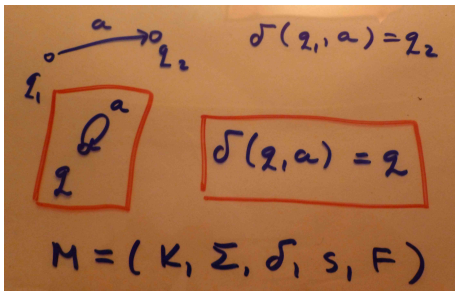 a
q₁ q₂ δ(q₁, a) = q₂
a
q δ(q, a) = q
M = ( K, Σ, δ, s, F )